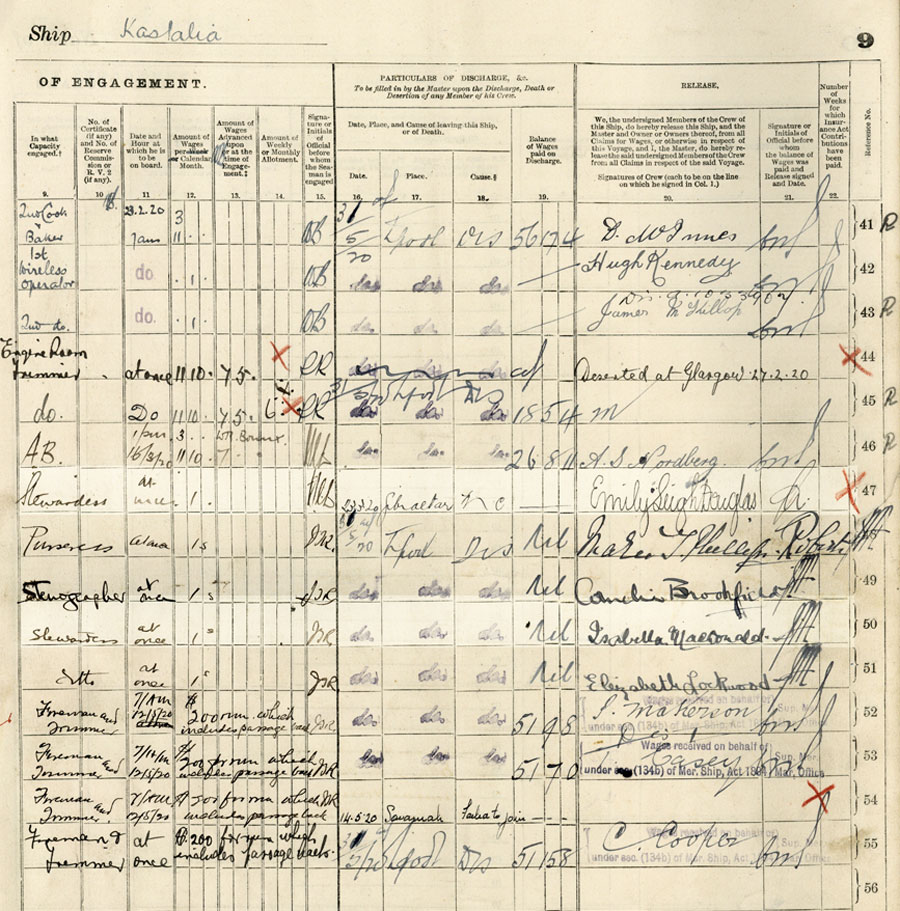 Ship Kastalia
9
OF ENGAGEMENT.
PARTICULARS OF DISCHARGE, &c.
To be filled in by the Master upon the Discharge, Death or
Desertion of any Member of his Crew.
RELEASE.
Number
of
Weeks
for
which
Insur-
ance Act
Contribu-
tions
have
been
paid.
Reference No.
In what
Capacity
engaged.†
No. of
Certificate
(if any)
and No.
of Reserve
Commis-
sion or
R.V. 2
(if any).
Date and
Hour at
which he is
to be
on board.
Amount of
Wages
per Week
or Calendar
Month.
Amount of
Wages
Advanced
upon
time of
Engage-
ment.‡
Amount of
Weekly
or Monthly
Allotment.
Signa-
ture or
Initials of
Official
before
whom
the Sea-
man is
engaged
Date, Place, and Cause of leaving this Ship,
or of Death.
Date. Place. Cause.§
Balance
of Wages
paid on
Discharge.
We, the undersigned Members of the Crew of
this Ship, do hereby release this Ship, and the
Master and Owner or Owners thereof, from all
Claims for Wages, or otherwise in respect of
this Voyage, and I, the Master, do hereby re-
lease the said undersigned Members of the Crew
from all Claims in respect of the said Voyage.
Signatures of Crew (each to be on the line
on which he signed in Col. 1.)
Signature or
Initials of
Official before
whom the
balance of
Wages was
paid and
Release signed
and Date.
9. 10. 11. 12. 13. 14. 15. 16. 17. 18. 19. 20. 21. 22.
2nd Cook
Baker 11 5/20 L'pool Dis 56 17 4 D. McInnes 41 R
1st
Wireless
operator do. 1 do do do Hugh Kennedy 42
2nd do. do. 1 do do do James 43 R
Engine Room
Trimmer at once 11 10 7 5 RR Deserted at Glasgow 27.2.20 44
do. Do 11 10 7 5 RR L'pool Dis 18 5 4 45 R
AB. 16/3/20 11 10 do do do 26 8 11 A. S. Nordberg 46 R
Stewardess at once 1 23.3.20 Gibraltar Emily Leigh Douglas 47
Purseress at once 1s L'pool Dis Nil Phillips Roberts
Stenographer at once 1s do do do Nil Brookfield 49
Stewardess at once 1s do do do Nil Isabella Macdonald 50
ditto at once 1s do do do Nil Elizabeth Lockwood 51
Fireman and
Trimmer 7/AM 200 run which
includes passage back do do do 51 9 8 52
Wages received on behalf of
Fireman and
Trimmer 12/5/20 includes passage back do do do 51 7 0 Casey 53
under sec. (134b) of Mer. Ship, Act 1894 Mar. Office
Fireman and
Trimmer 7/AM includes passage back 14.5.20 Savannah Failed to join 54
Fireman and
Trimmer at once $200 for run which
includes passage back. L'pool Dis 51 15 8 C. Cooper 55
Wages received on behalf of
under sec. (134b) of Mer. Ship, Act
56